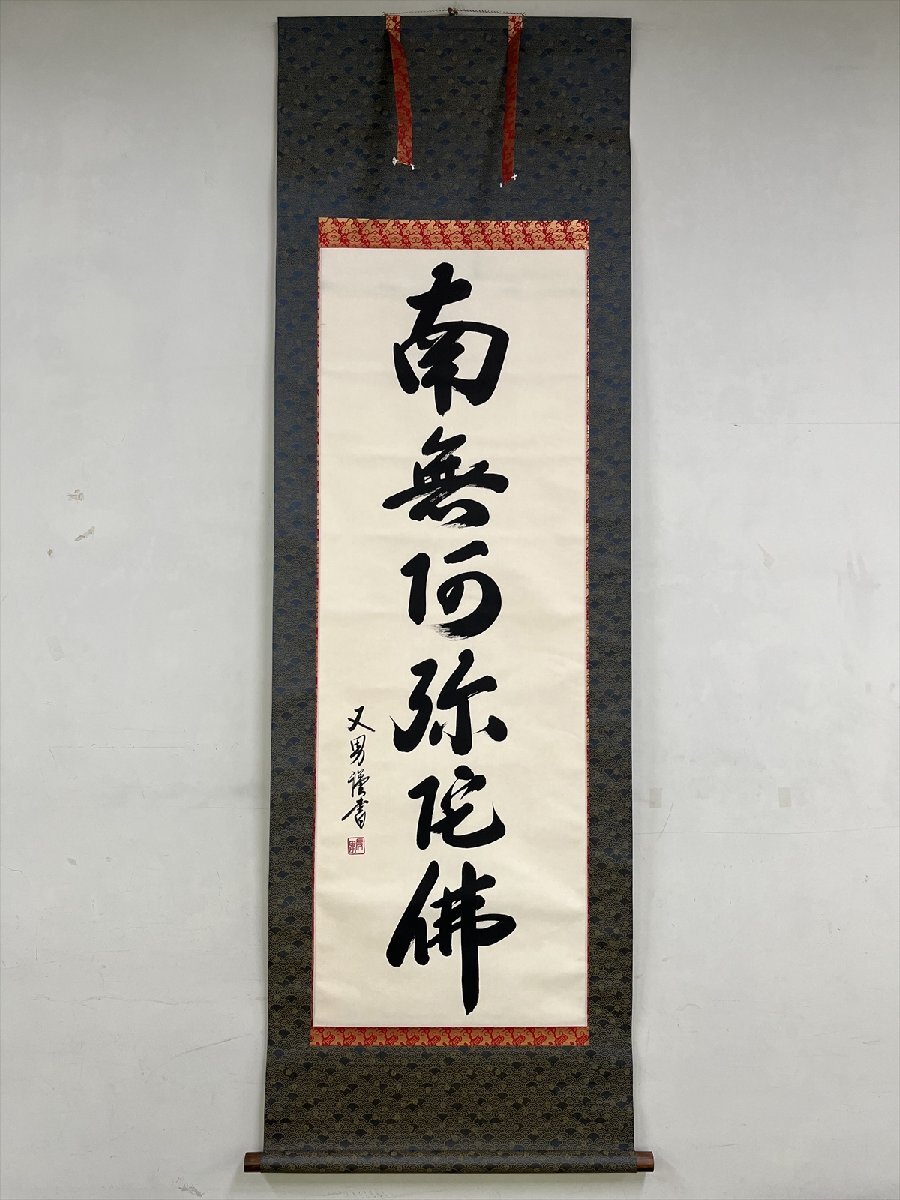 南無阿弥陀佛
又男謹書